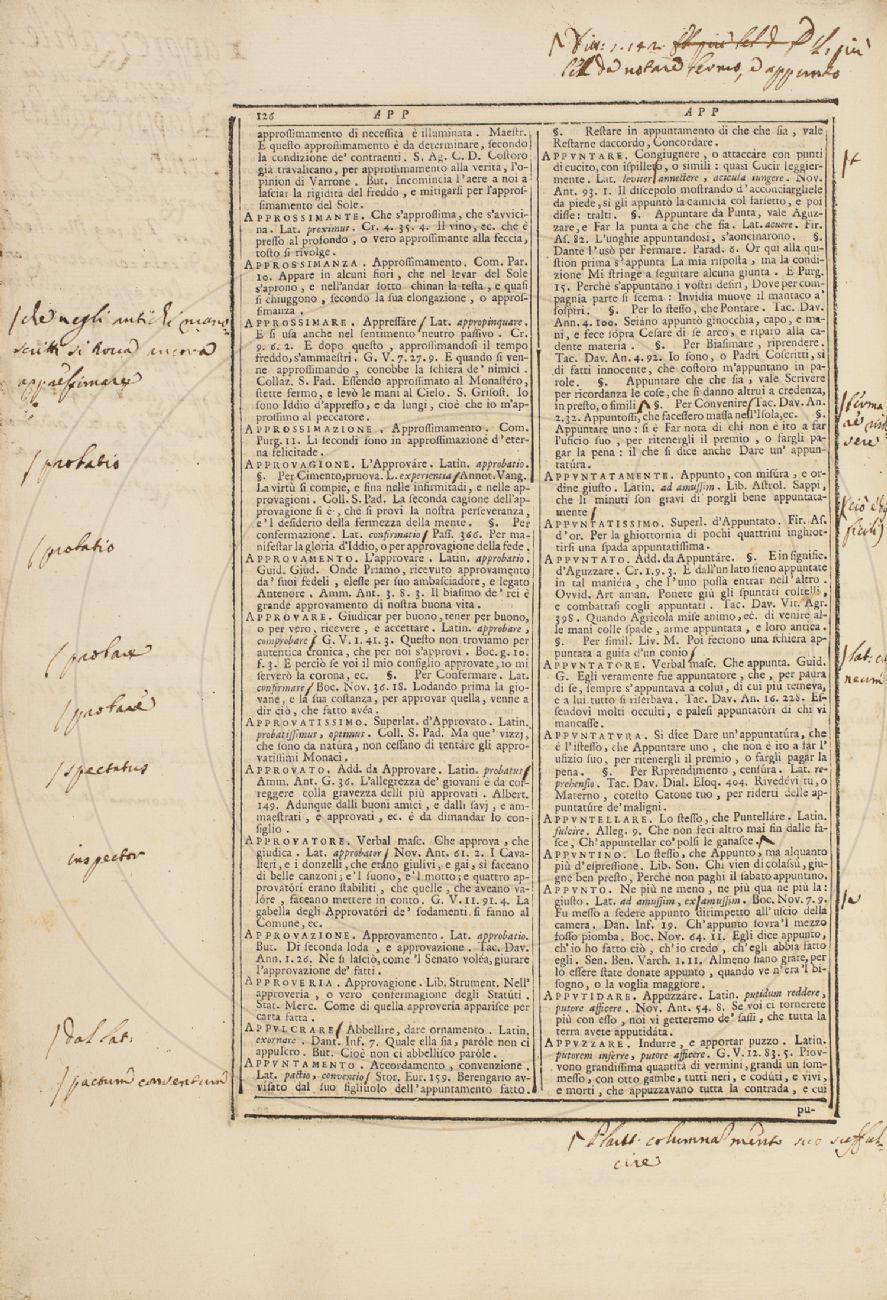 126 APP APP
approssimamento di necessità è illuminata. Maestr.
E questo approssimamento è da determinare, secondo
la condizione de' contraenti. S. Ag. C. D. Costoro
già travalicano, per approssimamento alla verità, l'o-
pinion di Varrone. But. Incomincia l'aere a noi a
lasciar la rigidità del freddo, e mitigarsi per l'appros-
simamento del Sole.
APPROSSIMANTE. Che s'approssima, che s'avvici-
na. Lat. proximus. Cr. 4. 35. 4. Il vino, ec. che è
presso al profondo, o vero approssimante alla feccia,
tosto si rivolge.
APPROSSIMANZA. Approssimamento. Com. Par.
10. Appare in alcuni fiori, che nel levar del Sole
s'aprono, e nell'andar sotto chinan la testa, e quasi
si chiuggono, secondo la sua elongazione, o appros-
simanza.
APPROSSIMARE. Appressare / Lat. appropinquare.
E si usa anche nel sentimento neutro passivo. Cr.
9. 6. 2. E dopo questo, approssimandosi il tempo
freddo, s'ammaestri. G. V. 7. 27. 9. E quando si ven-
ne approssimando, conobbe la schiera de' nimici.
Collaz. S. Pad. Essendo approssimato al Monastéro,
stette fermo, e levò le mani al Cielo. S. Grisost. Io
sono Iddio d'appresso, e da lungi, cioè che io m'ap-
prossimo al peccatore.
APPROSSIMAZIONE. Approssimamento. Com.
Purg. 11. Li secondi sono in approssimazione d'eter-
na felicitade.
APPROVAGIONE. L'Approváre. Latin. approbatio.
§. Per Cimento, pruova. L. experientia / Annot. Vang.
La virtù si compie, e fina nelle infirmitadi, e nelle ap-
provagioni. Coll. S. Pad. La seconda cagione dell'ap-
provagione si è, che si provi la nostra perseveranza,
e 'l desiderio della fermezza della mente. §. Per
confermazione. Lat. confirmatio / Pass. 366. Per ma-
nifestar la gloria d'Iddio, o per approvagione della fede.
APPROVAMENTO. L'approvare. Latin. approbatio.
Guid. Giud. Onde Priamo, ricevuto approvamento
da' suoi fedeli, elesse per suo ambasciadore, e legato
Antenore. Amm. Ant. 3. 8. 3. Il biasimo de' rei è
grande approvamento di nostra buona vita.
APPROVARE. Giudicar per buono, tener per buono,
o per vero, ricevere, e accettare. Latin. approbare,
comprobare / G. V. 1. 41. 3. Questo non troviamo per
autentica cronica, che per noi s'approvi. Boc. g. 10.
f. 3. E perciò se voi il mio consiglio approvate, io mi
serverò la corona, ec. §. Per Confermare. Lat.
confirmare / Boc. Nov. 36. 18. Lodando prima la gio-
vane, e la sua costanza, per approvar quella, venne a
dir ciò, che fatto avéa.
APPROVATISSIMO. Superlat. d'Approvato. Latin.
probatissimus, optimus. Coll. S. Pad. Ma que' vizzj,
che sono da natúra, non cessano di tentáre gli appro-
vatissimi Monaci.
APPROVATO. Add. da Approvare. Latin. probatus /
Amm. Ant. G. 36. L'allegrezza de' giovani è da cor-
reggere colla gravezza delli più approvati. Albert.
149. Adunque dalli buoni amici, e dalli savj, e am-
maestrati, e approvati, ec. è da dimandar lo con-
siglio.
APPROVATORE. Verbal masc. Che approva, che
giudica. Lat. approbator / Nov. Ant. 61. 2. I Cava-
lieri, e i donzelli, che erano giulivi, e gai, si faceano
di belle canzoni; e 'l suono, e 'l motto; e quattro ap-
provatóri erano stabiliti, che quelle, che aveano va-
lóre, faceano mettere in conto. G. V. 11. 91. 4. La
gabella degli Approvatóri de' sodamenti si fanno al
Comune, ec.
APPROVAZIONE. Approvamento. Lat. approbatio.
But. Di seconda loda, e approvazione. Tac. Dav.
Ann. 1. 26. Ne si lasciò, come 'l Senato voléa, giurare
l'approvazione de' fatti.
APPROVERIA. Approvagione. Lib. Strument. Nell'
approveria, o vero confermagione degli Statúti.
Stat. Merc. Come di quella approveria apparisce per
carta fatta.
APPULCRARE / Abbellire, dare ornamento. Latin.
exornare. Dant. Inf. 7. Quale ella sia, paróle non ci
appulcro. But. Cioè non ci abbellisco paróle.
APPVNTAMENTO. Accordamento, convenzione.
Lat. pactio, conventio / Stor. Eur. 159. Berengario av-
visato dal suo figliuolo dell'appuntamento fatto.
§. Restare in appuntamento di che che sia, vale
Restarne daccordo, Concordare.
APPVNTARE. Congiugnere, o attaccáre con punti
di cucito, con ispilletto, o simili: quasi Cucir leggier-
mente. Lat. leviter annectere, acicula iungere. Nov.
Ant. 93. 1. Il discepolo mostrando d'acconciargliele
da piede, si gli appuntò la camicia col farsetto, e poi
disse: tralti. §. Appuntare da Punta, vale Aguz-
zare, e Far la punta a che che sia. Lat. acuere. Fir.
As. 82. L'unghie appuntandosi, s'aoncinarono. §.
Dante l'usò per Fermare. Parad. 6. Or qui alla qui-
stion prima s'appunta La mia risposta, ma la condi-
zione Mi stringe a seguitare alcuna giunta. E Purg.
15. Perchè s'appuntano i vostri desiri, Dove per com-
pagnia parte si scema: Invidia muove il mantaco a'
sospiri. §. Per lo stesso, che Pontare. Tac. Dav.
Ann. 4. 100. Seiáno appuntò ginocchia, capo, e ma-
ni, e fece sopra Cesare di se arco, e riparo alla ca-
dente materia. §. Per Biasimare, riprendere.
Tac. Dav. An. 4. 92. Io sono, o Padri Coscritti, sì
di fatti innocente, che costoro m'appuntano in pa-
role. §. Appuntare che che sia, vale Scrivere
per ricordanza le cose, che si danno altrui a credenza,
in presto, o simili §. Per Convenire / Tac. Dav. An.
2. 32. Appuntossi, che facessero massa nell'Isola, ec. §.
Appuntare uno: si è Far nota di chi non è ito a far
l'uficio suo, per ritenergli il premio, o fargli pa-
gar la pena: il che si dice anche Dare un' appun-
tatúra.
APPVNTATAMENTE. Appunto, con misúra, e or-
dine giusto. Latin. ad amussim. Lib. Astrol. Sappi,
che li minuti son gravi di porgli bene appuntata-
mente /
APPVNTATISSIMO. Superl. d'Appuntato. Fir. As.
d'or. Per la ghiottornia di pochi quattrini inghiot-
tirsi una spada appuntatissima.
APPVNTATO. Add. da Appuntáre. §. E in signific.
d'Aguzzare. Cr. 1. 9. 3. E dall'un lato sieno appuntate
in tal maniéra, che l'uno possa entrar nell'altro.
Ovvid. Art aman. Ponete giù gli spuntáti coltelli,
e combattasi cogli appuntati. Tac. Dav. Vit. Agr.
398. Quando Agricola mise animo, ec. di venire al-
le mani colle spade, arme appuntata, e loro antica.
§. Per simil. Liv. M. Poi feciono una schiera ap-
puntata a guisa d'un conio /
APPVNTATORE. Verbal masc. Che appunta. Guid.
G. Egli veramente fue appuntatore, che, per paúra
di se, sempre s'appuntava a colui, di cui più temeva,
e a lui tutto si riserbava. Tac. Dav. An. 16. 228. Es-
sendovi molti occulti, e palesi appuntatóri di chi vi
mancasse.
APPVNTATVRA. Si dice Dare un'appuntatúra, che
è l'istesso, che Appuntare uno, che non è ito a far l'
ufizio suo, per ritenergli il premio, o fargli pagár la
pena. §. Per Riprendimento, censúra. Lat. re-
prehensio. Tac. Dav. Dial. Eloq. 404. Rivedévi tu, o
Materno, cotesto Catone tuo, per riderti delle ap-
puntatúre de' maligni.
APPVNTELLARE. Lo stesso, che Puntelláre. Latin.
fulcire. Alleg. 9. Che non feci altro mai sin dalle fa-
sce, Ch'appuntellar co' polsi le ganasce.
APPVNTINO. Lo stesso, che Appunto, ma alquanto
più d'espressione. Lib. Son. Chi vien di colassù, giu-
gne ben presto, Perchè non paghi il sabato appuntino.
APPVNTO. Ne più ne meno, ne più qua ne più là:
giusto. Lat. ad amussim, examussim. Boc. Nov. 7. 9.
Fu messo a sedere appunto dirimpetto all'uscio della
camera. Dan. Inf. 19. Ch'appunto sovra 'l mezzo
fosso piomba. Boc. Nov. 64. 11. Egli dice appunto,
ch'io ho fatto ciò, ch'io credo, ch'egli abbia fatto
egli. Sen. Ben. Varch. 1. 11. Almeno siano grate, per
lo essere state donate appunto, quando ve n'era 'l bi-
sogno, o la voglia maggiore.
APPVTIDARE. Appuzzáre. Latin. putidum reddere,
putore afficere. Nov. Ant. 54. 8. Se voi ci tornerete
più con esso, noi vi getteremo de' sassi, che tutta la
terra avete apputidáta.
APPVZZARE. Indurre, e apportar puzzo. Latin.
putorem inferre, putore afficere. G. V. 12. 83. 5. Piov-
vono grandissima quantità di vermini, grandi un som-
messo, con otto gambe, tutti neri, e codúti, e vivi,
e morti, che appuzzavano tutta la contrada, e cui
pu-
da notare fermo, e appunto
che negli antichi mano
scritti si trova ancora
appressimare
probatio
probatio
probare
probare
spectatus
inspector
dal lat.
pactum conventum
ferma
Plaut. columnam mento suo sufful-
cire